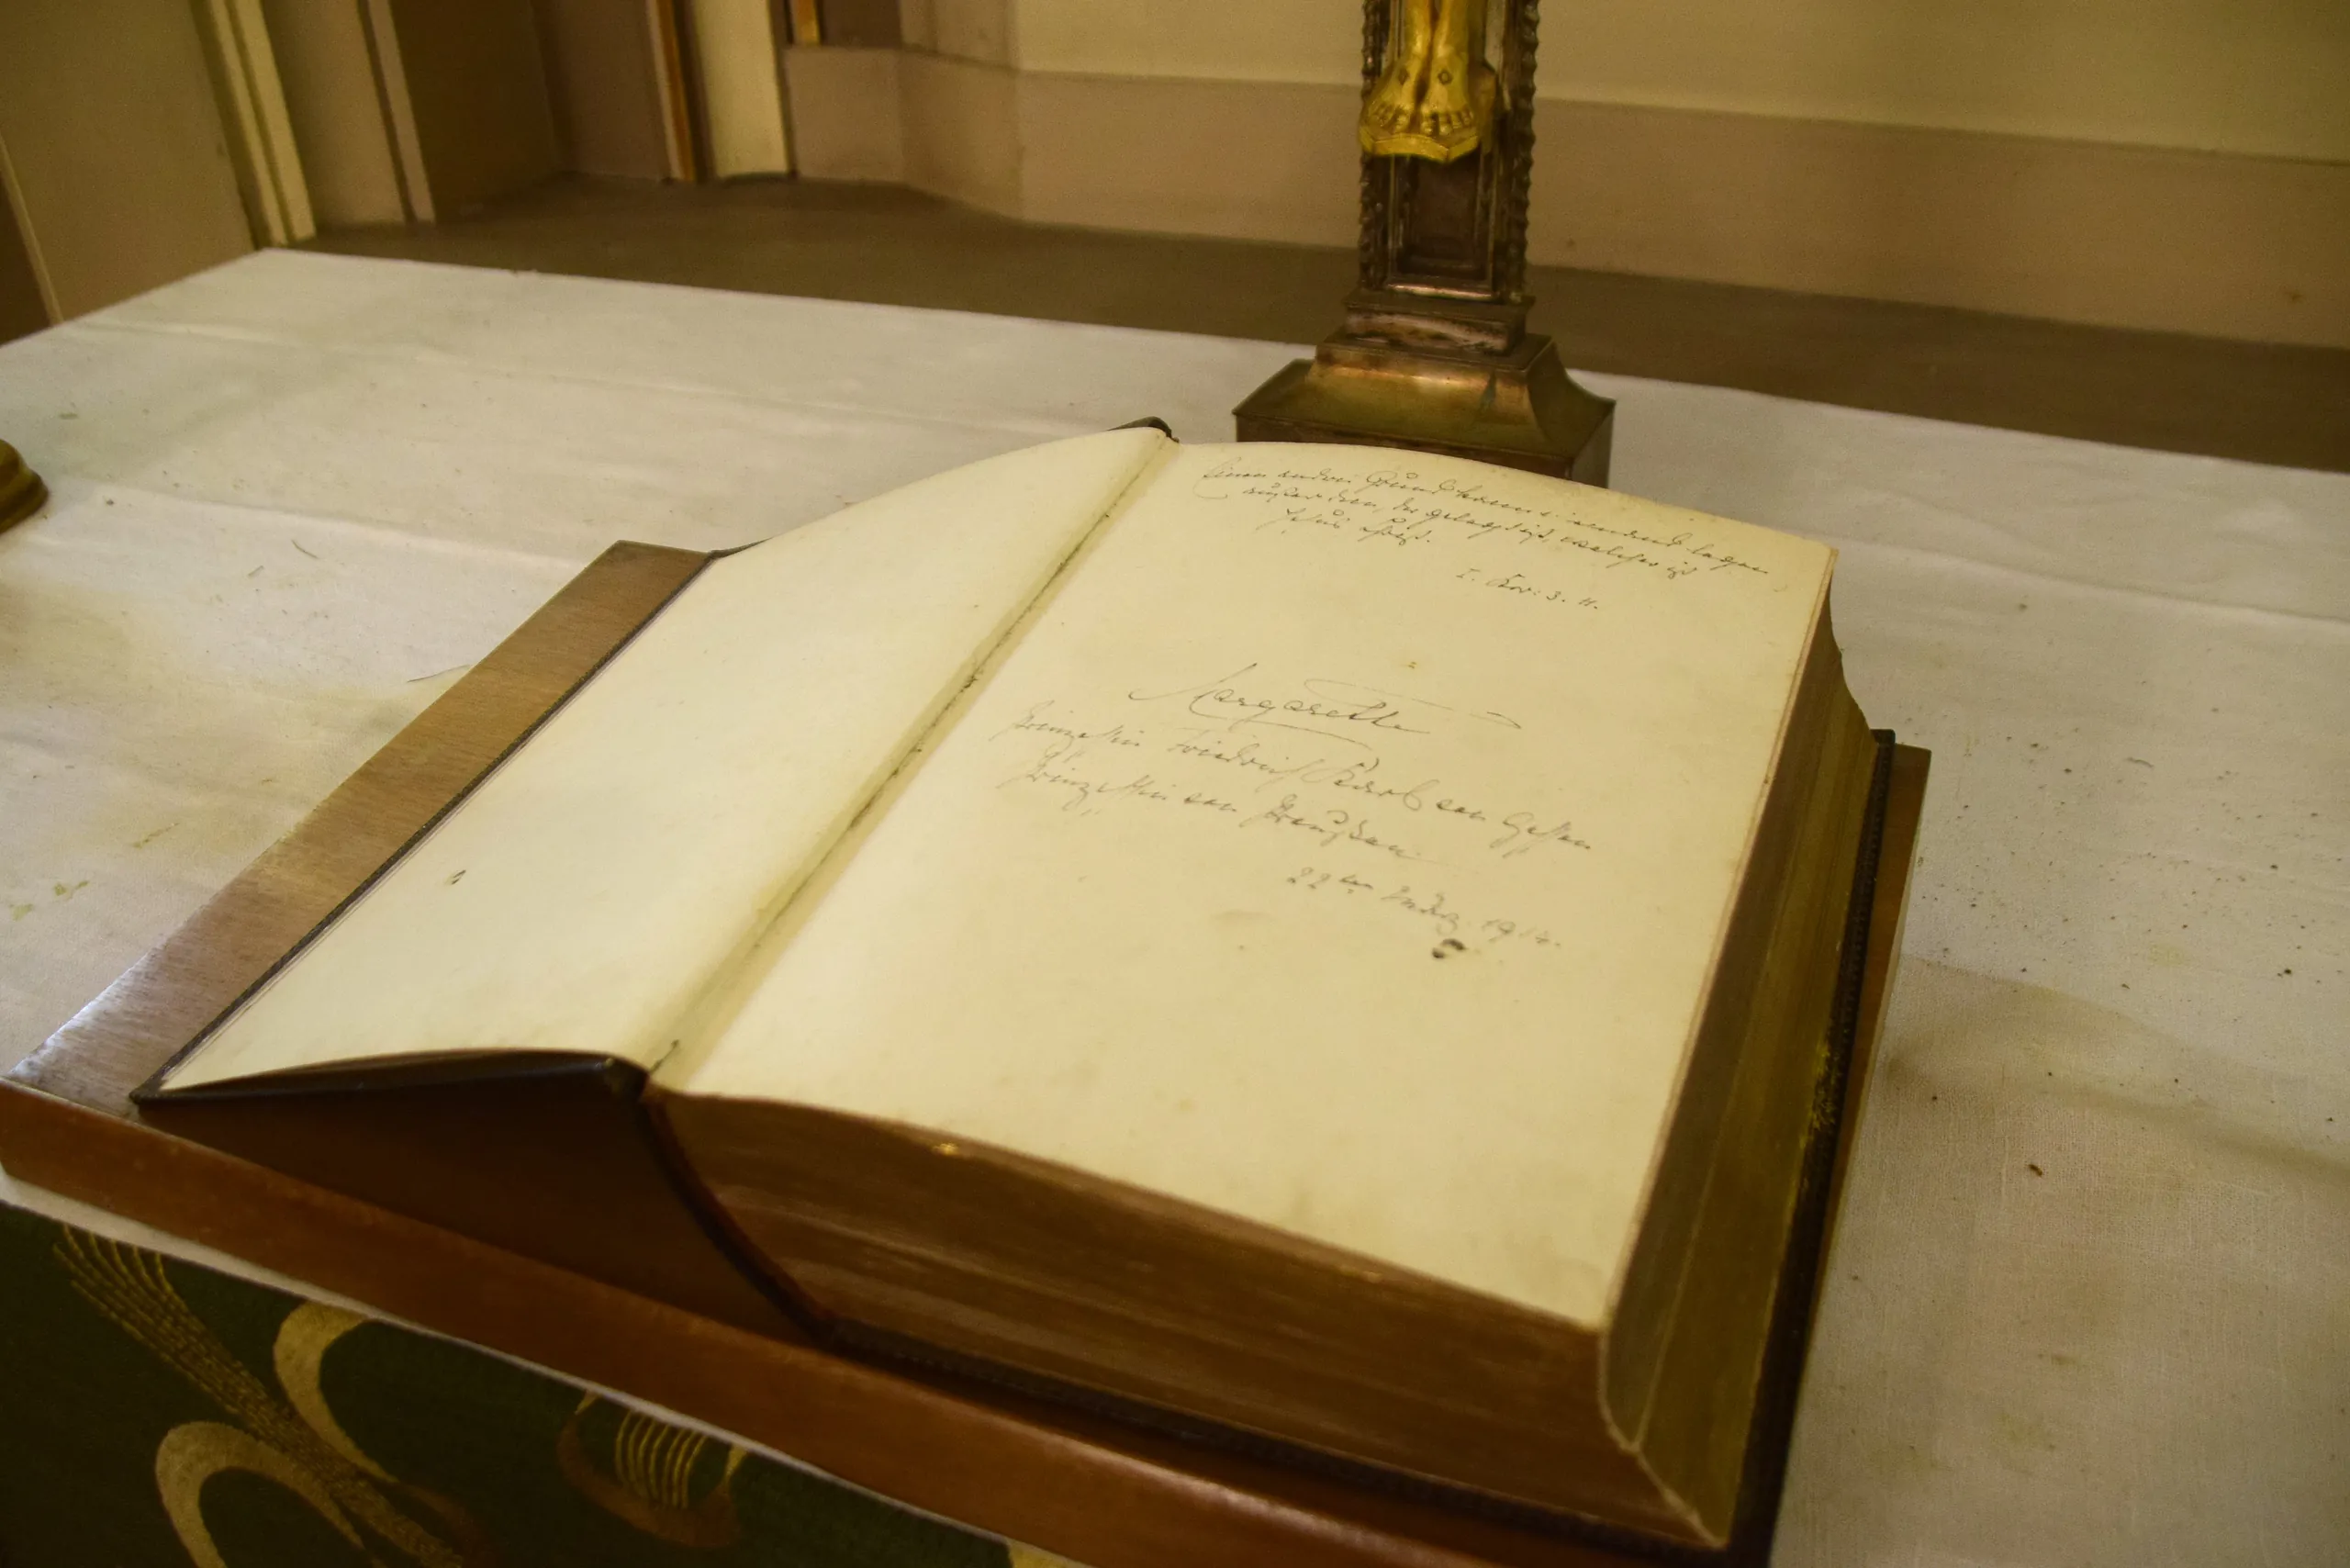 Einen andern Grund kann niemand legen
außer dem, der gelegt ist, welcher ist
Jesus Christ.
I. Kor: 3. 11.
Margarethe
Prinzessin Friedrich Karl von Hessen
Prinzessin von Preußen
22ten 1914.